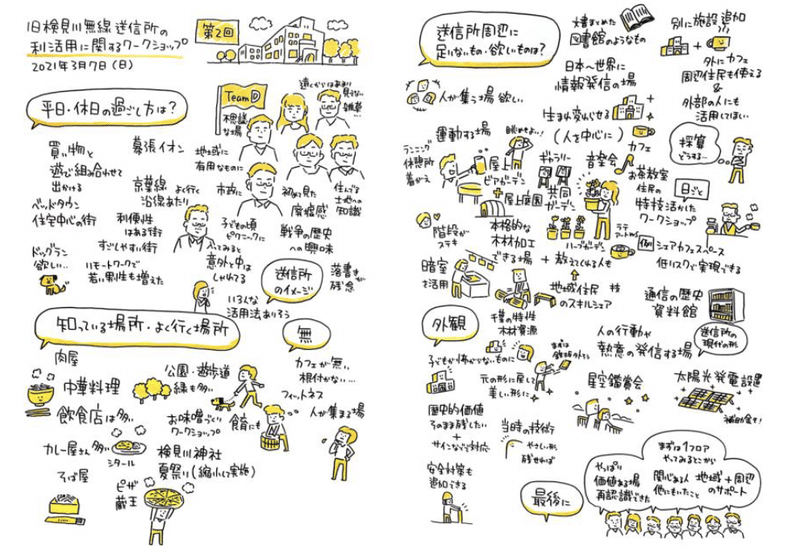 旧検見川無線送信所の
利活用に関するワークショップ
2021年3月7日(日)
第2回
平日・休日の過ごし方は?
買い物と
遊び組み合わせて
出かける
幕張イオン
ベッドタウン
住宅中心の街
京葉線
沿線あたり
よく行く
利便性
はある街
すごしやすい街
ドッグラン
欲しい…
リモートワークで
若い男性も増えた
TeamD
不思議
な場
地域に
有用なものに
市政に
初めて見た
廃墟感
住んでる
土地への
知識
子どもの頃
ピクニックに
戦争の歴史
への興味
意外と中は
しゃれてる
いろんな
活用法ありそう
送信所
のイメージ
落書き
残念
知っている場所・よく行く場所
無
肉屋
中華料理
飲食店は多い
カレー屋さん多い
シタール
そば屋
ピザ
蔵王
公園・遊歩道
緑も多い
お味噌づくり
ワークショップ
食育にも
検見川神社
夏祭り(縮小して実施)
カフェが無い
根付かない…
フィットネス
人が集まる場
送信所周辺に
足りないもの・欲しいものは?
本書まとめた
図書館のようなもの
別に施設追加
日本へ世界に
情報発信の場
外にカフェ
周辺住民も使える
&
外部の人にも
活用してほしい
人が集う場 欲しい
生まれ変わらせる
(人を中心に)
採算
どうする…
運動する場
眺めもよい!
ランニング
休憩所
着がえ
屋上
ビアガーデン
+
屋上庭園
ギャラリー
音楽会
カフェ
共同
ガーデン
お茶教室
住民の
特技活かした
ワークショップ
日ごと
階段が
ステキ
本格的な
木材加工
できる場
ハーブガーデン
+
教えてくれる人も
ラテ
アートetc
例
シェアカフェスペース
低リスクで実現できる
暗室
を活用
地域住民
のスキルシェア
技
通信の歴史
資料館
外観
千葉の特性
木材資源
人の行動や
熱意の発信する場
送信所の
現代の形
子どもが怖がらないものに
元の形に戻して
美しい形に
星空鑑賞会
太陽光発電設置
補助金も!
歴史的価値
そのまま残したい
+
サインなどで対応
当時の技術
やさしい形
残せれば
安全対策も
追加できる
最後に
やっぱり
価値ある場
再認識できた
まずは1フロア
やってみるとこから
関心ある人
他にもいたこと
地域+周辺
のサポート